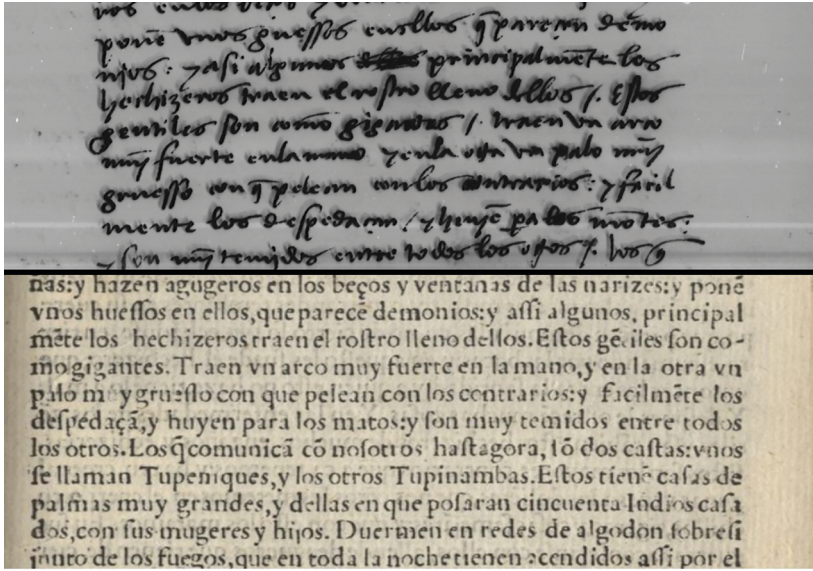 ponē vnos guessos enellos q̄ pareçan demo
nios: y asi algunos principalmēte los
hechizeros traen el rostro lleno dellos /. Estos
gentiles son como gigantes /. traen vn arco
muy fuerte enla mano y enla otra vn palo muy
gruesso con q̄ pelean con los contrarios: y facil
mente los despedaçan / y huyē pa los mōtes:
y son muy temidos entre todos los otros /. los q̄
nas:y hazen agugeros en los beços y ventanas de las narizes:y ponē
vnos hueſſos en ellos,que parecē demonios:y aſſi algunos, principal
mēte los hechizeros traen el roſtro lleno dellos.Eſtos gētiles ſon co-
mo gigantes. Traen vn arco muy fuerte en la mano,y en la otra vn
palo muy grueſſo con que pelean con los contrarios:y facilmēte los
deſpedaçā,y huyen para los matos:y ſon muy temidos entre todos
los otros.Los q̄ comunicā cō noſotros haſtagora, ſō dos caſtas:vnos
ſe llaman Tupeniques,y los otros Tupinambas.Eſtos tienē caſas de
palmas muy grandes,y dellas en que poſaran cincuenta Indios caſa
dos,con ſus mugeres y hijos. Duermen en redes de algodon ſobreſi
junto de los fuegos,que en toda la noche tienen acendidos aſſi por el